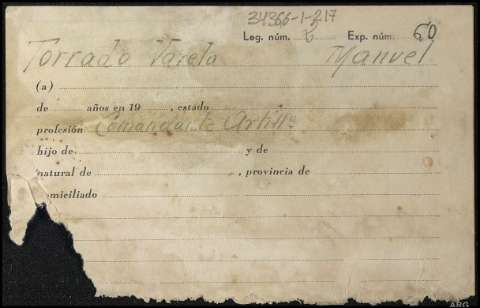 34366-1-217
Leg. núm. 2 Exp. núm. 60
Torrado Varela Manuel
(a)
de años en 19 , estado
profesión Comandante Artillª
hijo de y de
natural de , provincia de
domiciliado
ARG